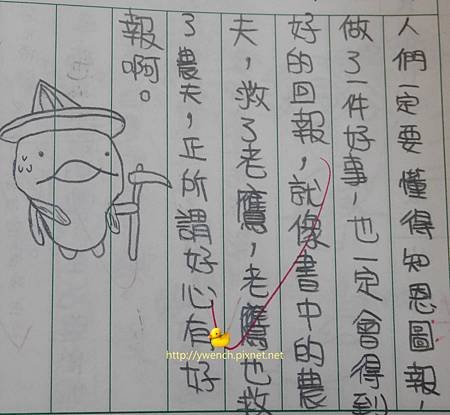 人們一定要懂得知恩圖報，
做了一件好事，也一定會得到
好的回報，就像書中的農
夫，救了老鷹，老鷹也救
了農夫，正所謂好心有好
報啊。
http://ywench.pixnet.net